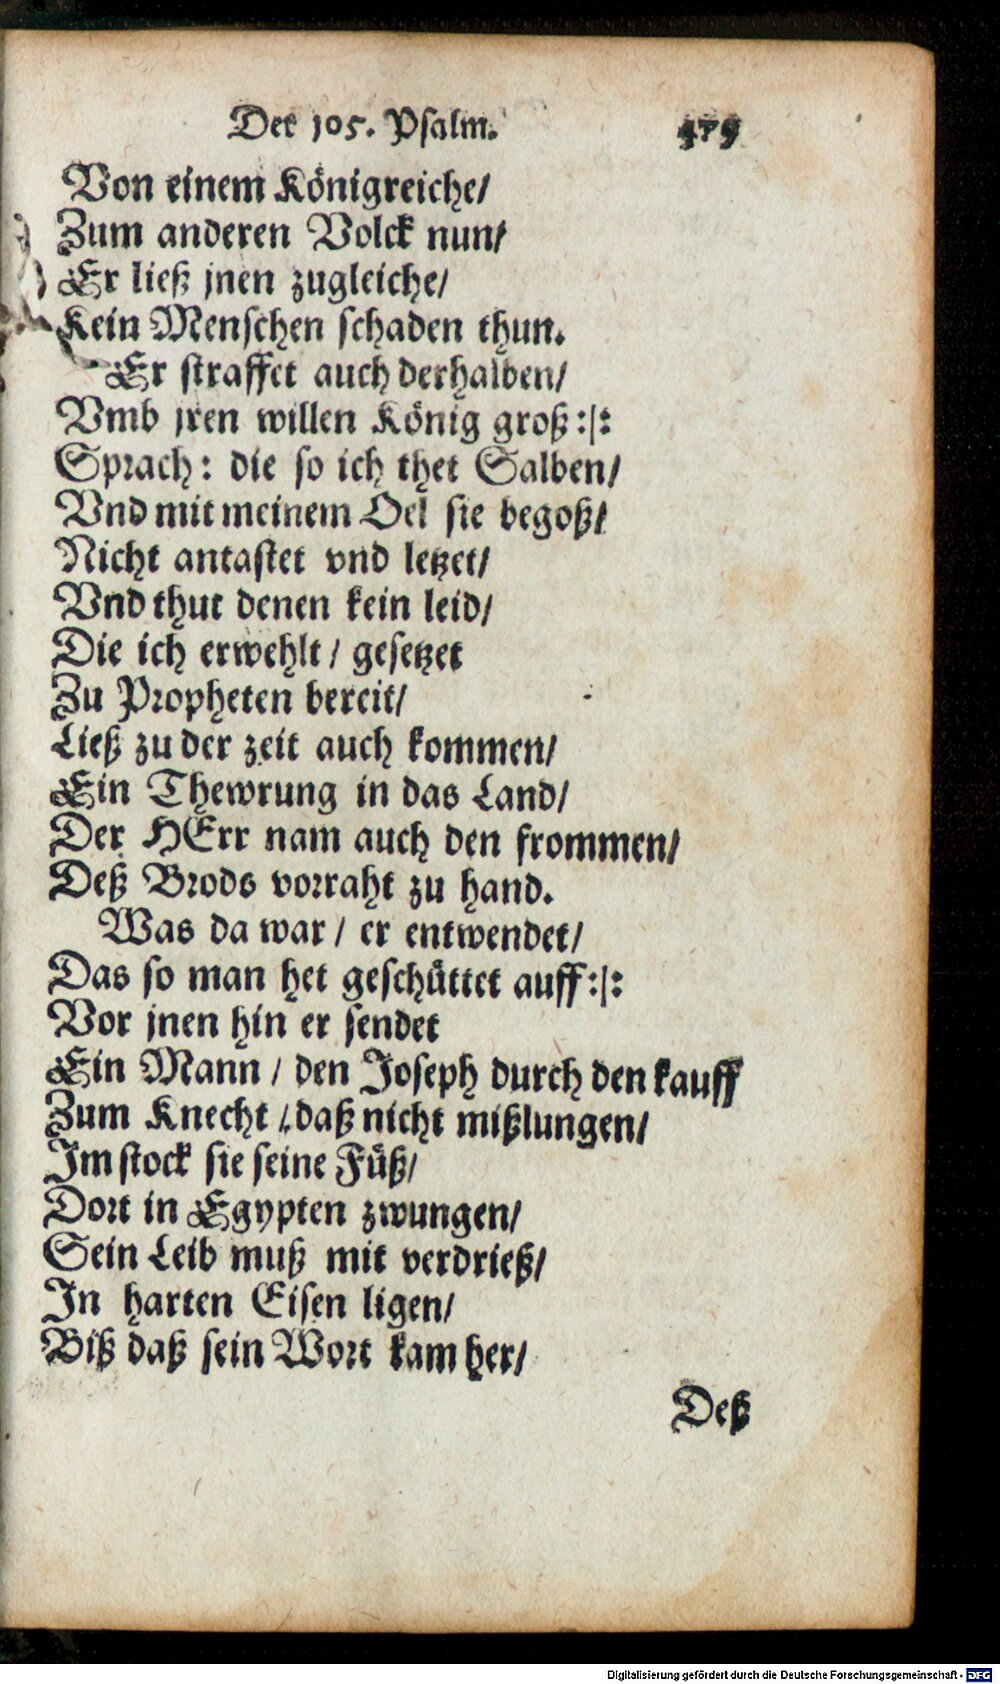 Der 105. Psalm.
Von einem Königreiche/
Zum anderen Volck nun/
Er ließ jnen zugleiche/
Kein Menschen schaden thun.
Er straffet auch derhalben/
Vmb jren willen König groß:|:
Sprach: die so ich thet Salben/
Vnd mit meinem Oel sie begoß/
Nicht antastet vnd letzet/
Vnd thut denen kein leid/
Die ich erwehlt/ gesetzet
Zu Propheten bereit/
Ließ zu der zeit auch kommen/
Ein Thewrung in das Land/
Der HErr nam auch den frommen/
Deß Brods vorraht zu hand.
Was da war/ er entwendet/
Das so man het geschüttet auff:|:
Vor jnen hin er sendet
Ein Mann/ den Joseph durch den kauff
Zum Knecht/ daß nicht mißlungen/
Im stock sie seine Füß/
Dort in Egypten zwungen/
Sein Leib muß mit verdrieß/
In harten Eisen ligen/
Biß daß sein Wort kam her/
Deß
Digitalisierung gefördert durch die Deutsche Forschungsgemeinschaft - DFG